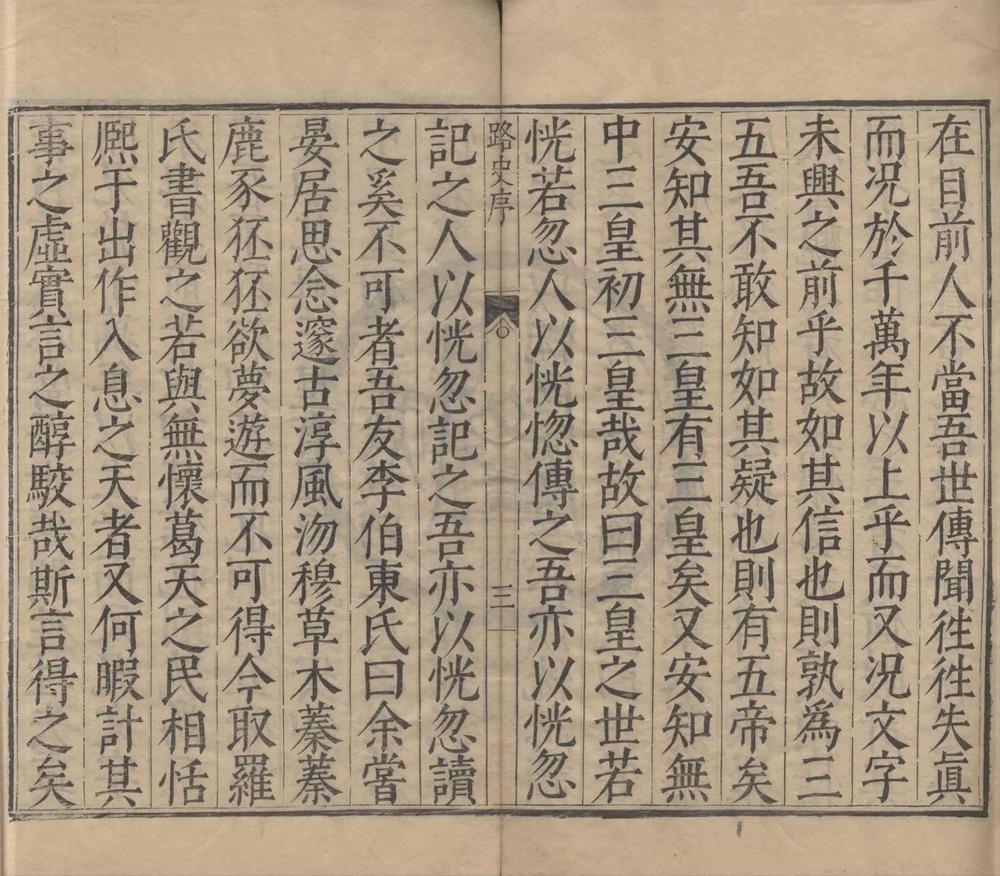 在目前人不當吾世傳聞徃徃失眞
而况於千萬年以上乎而又况文字
未興之前乎故如其信也則孰爲三
五吾不敢知如其疑也則有五帝矣
安知其無三皇有三皇矣又安知無
中三皇初三皇哉故曰三皇之世若
恍若忽人以恍惚傳之吾亦以恍忽
路史序
三
記之人以恍忽記之吾亦以恍忽讀
之奚不可者吾友李伯東氏曰余嘗
晏居思念邃古淳風沕穆草木蓁蓁
鹿豕狉狉欲夢遊而不可得今取羅
氏書觀之若與無懷葛天之民相恬
熈于出作入息之天者又何暇計其
事之虛實言之醇駮哉斯言得之矣